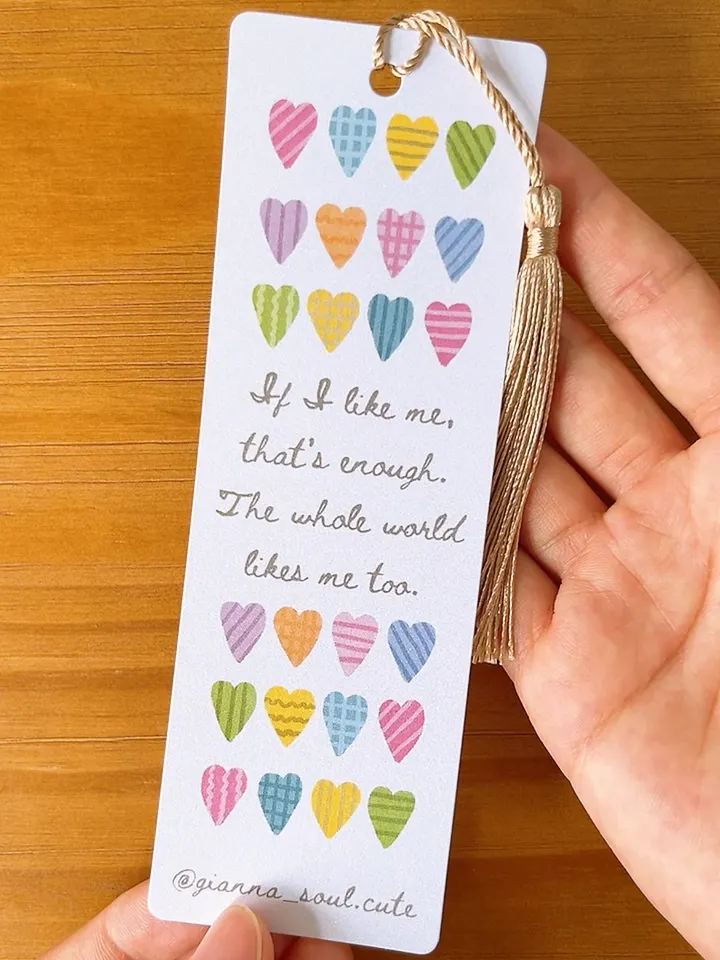 If I like me,
that's enough.
The whole world
likes me too.
@gianna_soul.cute